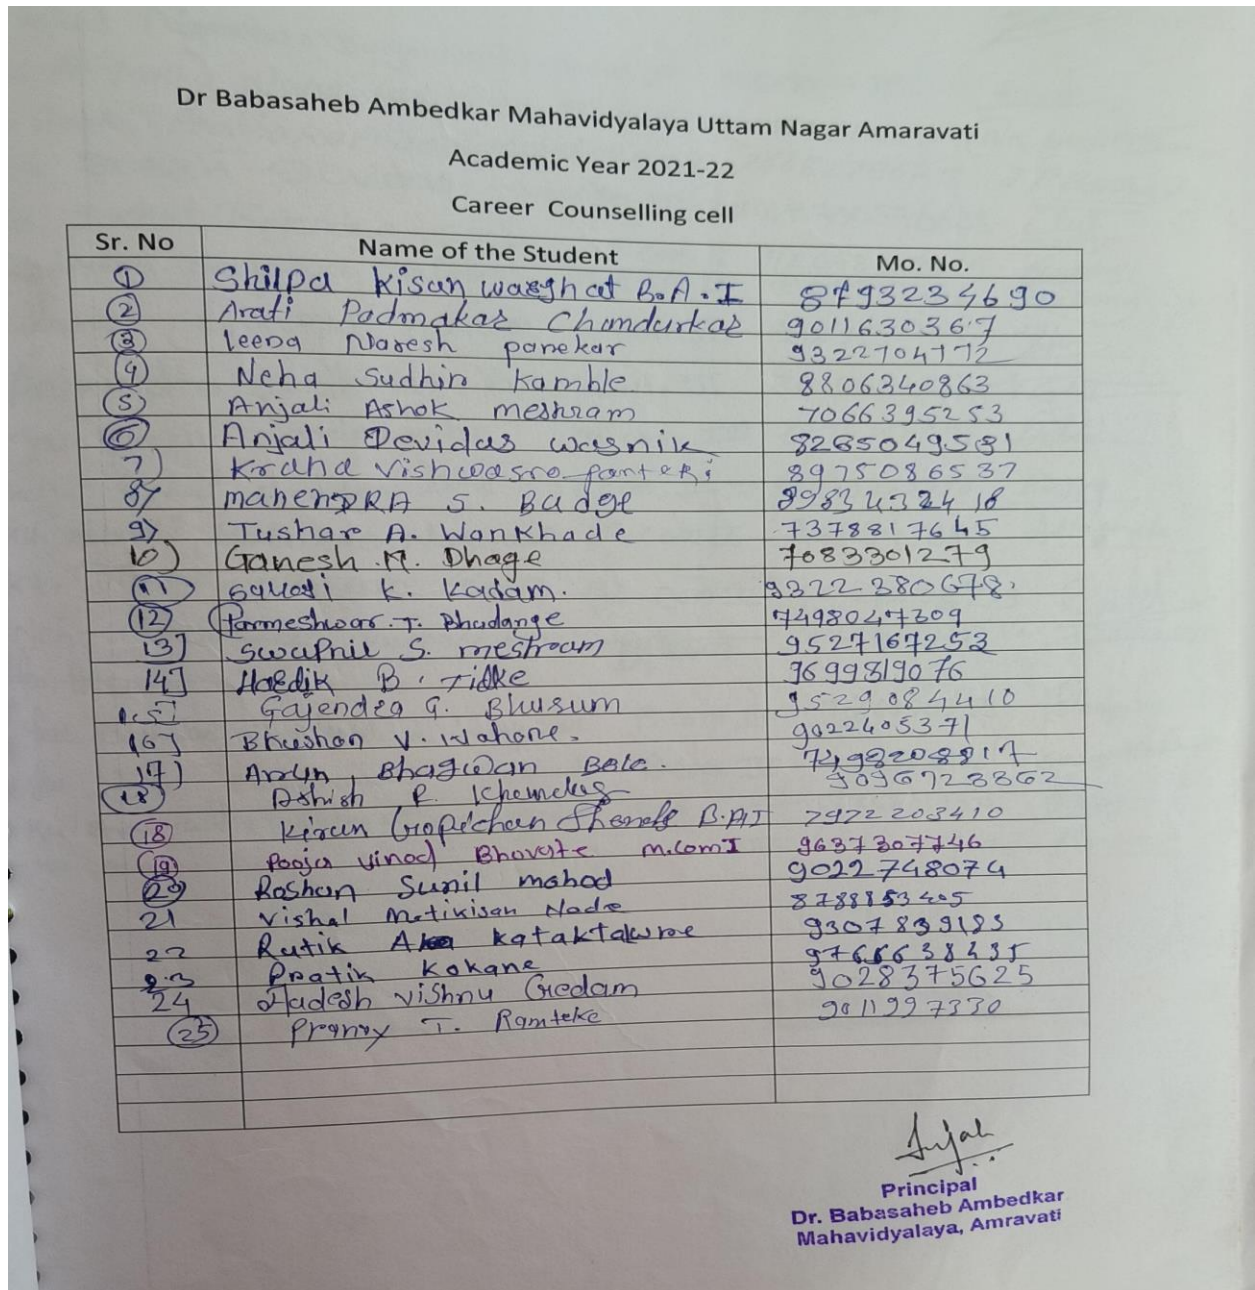 Dr Babasaheb Ambedkar Mahavidyalaya Uttam Nagar Amaravati
Academic Year 2021-22
Career Counselling cell
Sr. No Name of the Student Mo. No.
1 Shilpa Kisan wasghat B.A.I 8793234690
2 Arati Padmakar Chandurkar 9011630367
3 leena Naresh panekar 9322704772
4 Neha Sudhir Kamble 8806340863
5 Anjali Ashok meshram 7066395253
6 Anjali Devidas wasnik 8265049581
7) 8975086537
8) mahendRA S. Badge
9) Tushar A. Wankhade 7378817645
10) Ganesh M. Dhage 7083301279
11 K. Kadam. 9322380678.
12 Parmeshwar. T. Bhadange 7498047309
13] Swapnil S. meshram 9527167253
14] Hardik B. Tidke 9699819076
15] Gajendra G. Bhusum 9529084410
16] Bhushan V. Wahane. 9022405371
17] Arun Bhagwan Bele. 7498208817
18 Ashish R. 9096723862
18 Kiran Gopichan B.AI 7972203410
19 Pooja Vinod Bhovate M.Com I 9637307746
20 Roshan Sunil mahod 9022748074
21 Vishal Motikisan Nade 8788853405
22 Rutik 9307839183
23 Pratik Kokane 9766638435
24 Aadesh Vishnu Gedam 9028375625
25 Pranay T. Ramteke 9011997330
Principal
Dr. Babasaheb Ambedkar
Mahavidyalaya, Amravati